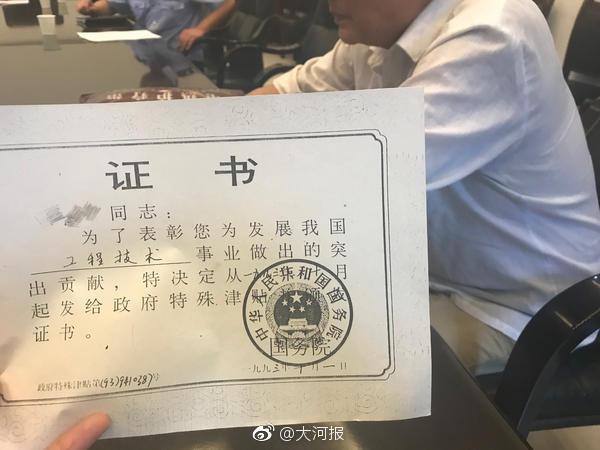 证 书
同志：
为了表彰您为发展我国
工程技术 事业做出的突
出贡献，特决定从一九 月
起发给政府特殊津贴
证书。
中华人民共和国国务院
国务院
一九九三年十月一日
政府特殊津贴第(93)9410387号
@大河报